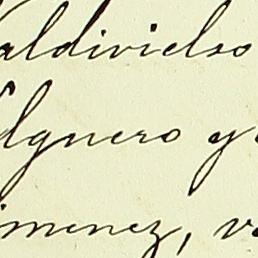 aldivielso
lguero y
imenez, v